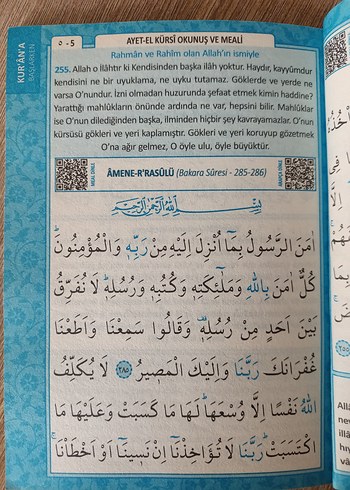 KUR'ÂN'A
BAŞLARKEN
٥ - 5
AYET-EL KÜRSÎ OKUNUŞ VE MEALİ
Rahmân ve Rahîm olan Allah'ın ismiyle
255. Allah o İlâhtır ki Kendisinden başka ilâh yoktur. Haydır, kayyûmdur
kendisini ne bir uyuklama, ne uyku tutamaz. Göklerde ve yerde ne
varsa O'nundur. İzni olmadan huzurunda şefaat etmek kimin haddine?
Yarattığı mahlûkların önünde ardında ne var, hepsini bilir. Mahlûklar
ise O'nun dilediğinden başka, ilminden hiçbir şey kavrayamazlar. O'nun
kürsüsü gökleri ve yeri kaplamıştır. Gökleri ve yeri koruyup gözetmek
O'na ağır gelmez, O öyle ulu, öyle büyüktür.
ÂMENE-R'RASÛLÜ (Bakara Sûresi - 285-286)
بِسْمِ اللّٰهِ الرَّحْمٰنِ الرَّحِيمِ
اٰمَنَ الرَّسُولُ بِمَٓا اُنْزِلَ اِلَيْهِ مِنْ رَبِّه۪ وَالْمُؤْمِنُونَۜ
كُلٌّ اٰمَنَ بِاللّٰهِ وَمَلٰٓئِكَتِه۪ وَكُتُبِه۪ وَرُسُلِه۪ۜ لَا نُفَرِّقُ
بَيْنَ اَحَدٍ مِنْ رُسُلِه۪ۜ وَقَالُوا سَمِعْنَا وَاَطَعْنَا
غُفْرَانَكَ رَبَّنَا وَاِلَيْكَ الْمَص۪يرُ ﴿٢٨٥﴾ لَا يُكَلِّفُ
اللّٰهُ نَفْسًا اِلَّا وُسْعَهَاۜ لَهَا مَا كَسَبَتْ وَعَلَيْهَا مَا
اكْتَسَبَتْۜ رَبَّنَا لَا تُؤَاخِذْنَٓا اِنْ نَس۪ينَٓا اَوْ اَخْطَأْنَاۚ